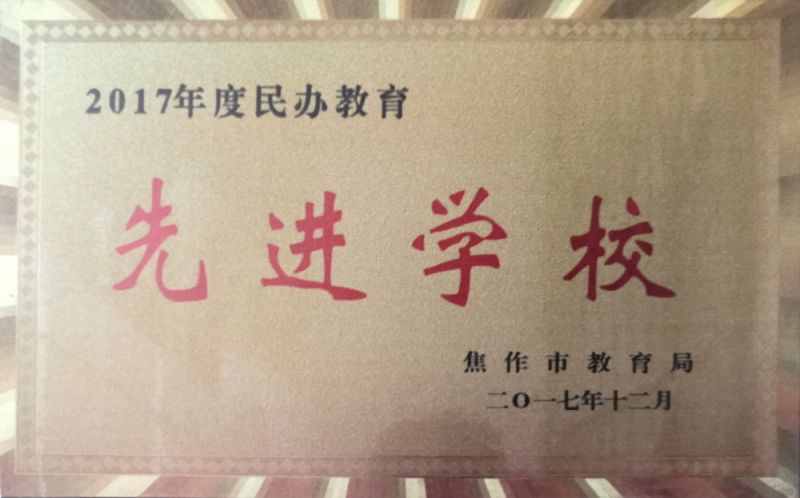 2017年度民办教育
先进学校
焦作市教育局
二〇一七年十二月